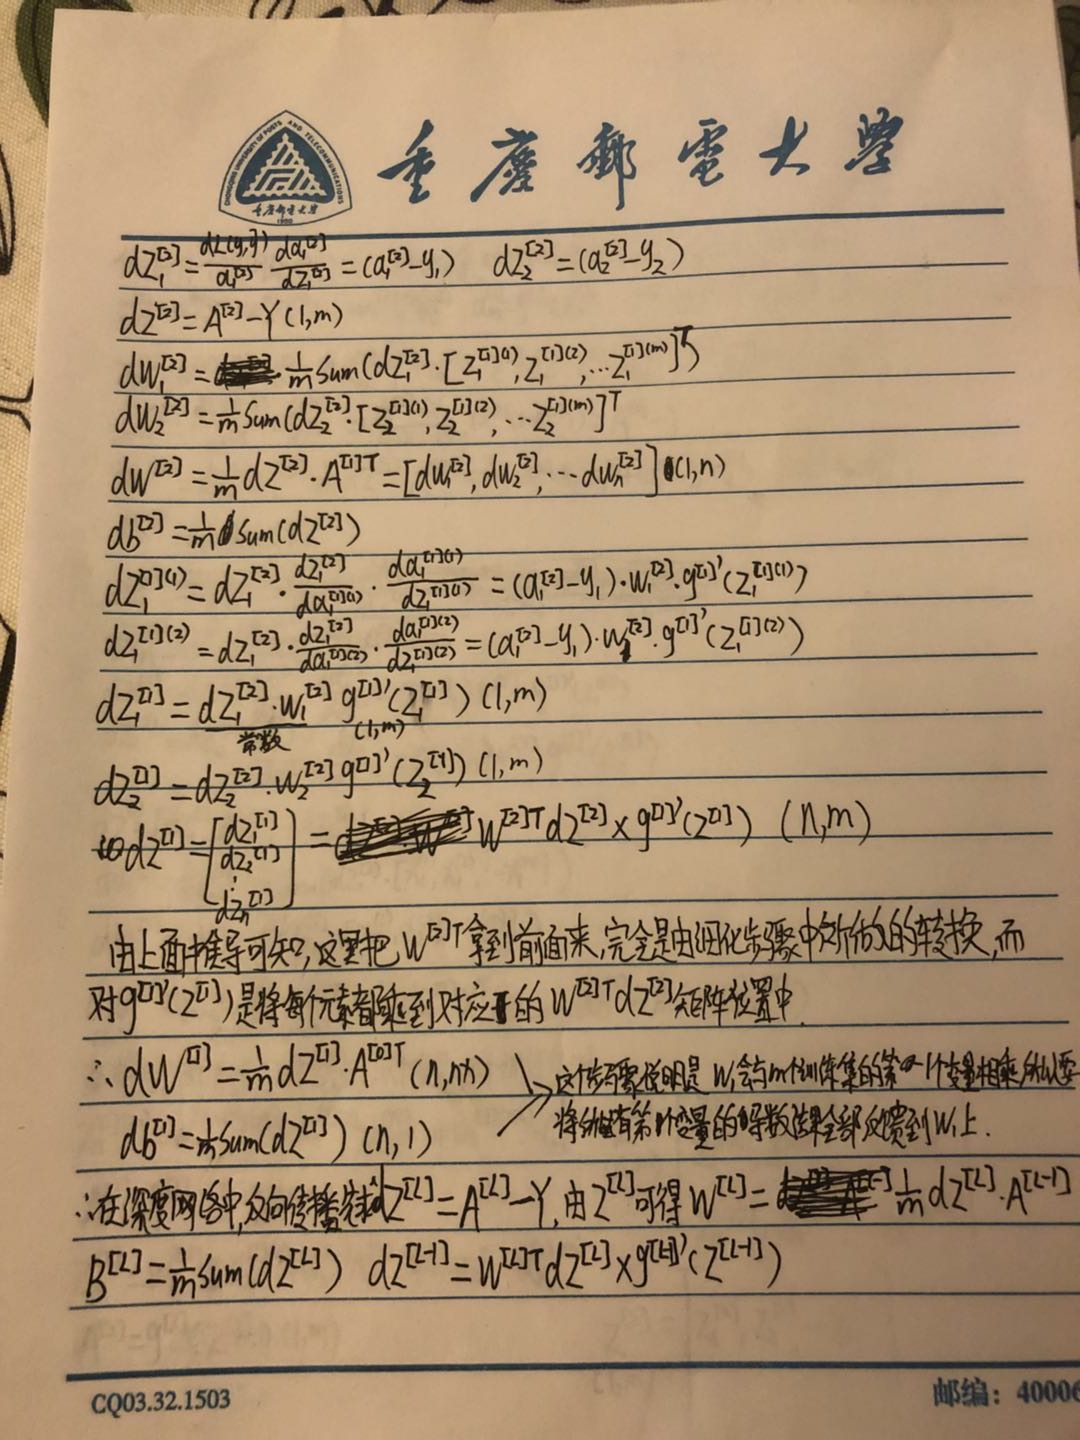 CHONGQING UNIVERSITY OF POSTS AND TELECOMMUNICATIONS
重庆邮电大学
1950
重慶郵電大學
dZ₁^[2] = dL(y,ŷ)/a₁^[2] da₁^[2]/dZ₁^[2] = (a₁^[2]-y₁) dZ₂^[2] = (a₂^[2]-y₂)
dZ^[2] = A^[2]-Y (1,m)
dW₁^[2] = 1/m Sum(dZ₁^[2]·[Z₁^[1](1), Z₁^[1](2), ···Z₁^[1](m)]^T)
dW₂^[2] = 1/m Sum(dZ₂^[2]·[Z₂^[1](1), Z₂^[1](2), ···Z₂^[1](m)]^T
dW^[2] = 1/m dZ^[2]·A^[1]T = [dW₁^[2], dW₂^[2], ···dWn^[2]] (1,n)
db^[2] = 1/m Sum(dZ^[2])
dZ₁^[1](1) = dZ₁^[2]·dZ₁^[2]/da₁^[1](1)·da₁^[1](1)/dZ₁^[1](1) = (a₁^[2]-y₁)·W₁^[2]·g^[1]'(Z₁^[1](1))
dZ₁^[1](2) = dZ₁^[2]·dZ₁^[2]/da₁^[1](2)·da₁^[1](2)/dZ₁^[1](2) = (a₁^[2]-y₁)·W₁^[2]·g^[1]'(Z₁^[1](2))
dZ₁^[1] = dZ₁^[2]·W₁^[2] g^[1]'(Z₁^[1]) (1,m)
常数 (1,m)
dZ₂^[1] = dZ₂^[2]·W₂^[2] g^[1]'(Z₂^[1]) (1,m)
dZ^[1] = [dZ₁^[1] dZ₂^[1] ⋮ dZn^[1]] = W^[2]T dZ^[2] × g^[1]'(Z^[1]) (n,m)
由上面推导可知,这里把W^[2]T拿到前面来,完全是由细化步骤中所做的转换,而
对g^[1]'(Z^[1])是将每个元素都乘到对应的W^[2]T dZ^[2]矩阵位置中.
∴dW^[1] = 1/m dZ^[1]·A^[0]T (n,nx)
这个步骤说明是W₁会与m个训练集的第一个变量相乘,所以要
将所有第1个变量的导数结果全部反馈到W₁上.
db^[1] = 1/m Sum(dZ^[1]) (n,1)
∴在深度网络中,反向传播先求dZ^[L] = A^[L]-Y,由Z^[L]可得W^[L] = 1/m dZ^[L]·A^[L-1]
B^[L] = 1/m Sum(dZ^[L]) dZ^[L-1] = W^[L]T dZ^[L] × g^[L]'(Z^[L-1])
CQ03.32.1503
邮编：40006